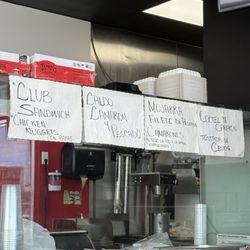 CLUB
SANDWICH
CHICKEN
NUGGETS
CON PAPAS
CALDO
CAMARON
Y
PESCADO
MOJARRA
FILETE DE
CAMARONES
COCTEL DE
CAMARON
TOSTADA DE
CEVICHE